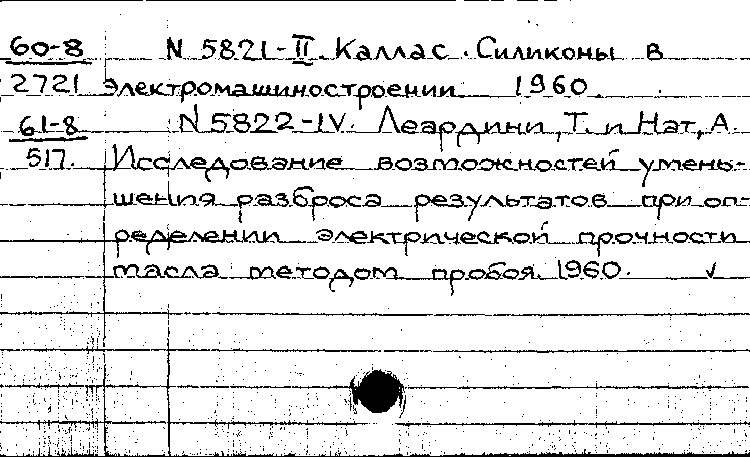 60-8 N 5821-II. Каллас. Силиконы в
2721 электромашиностроении. 1960.
61-8 N 5822-IV. Леардини, Т. и Нат, А.
517. Исследование возможностей умень-
шения разброса результатов при оп-
ределении электрической прочности
масла методом пробоя. 1960. ✓